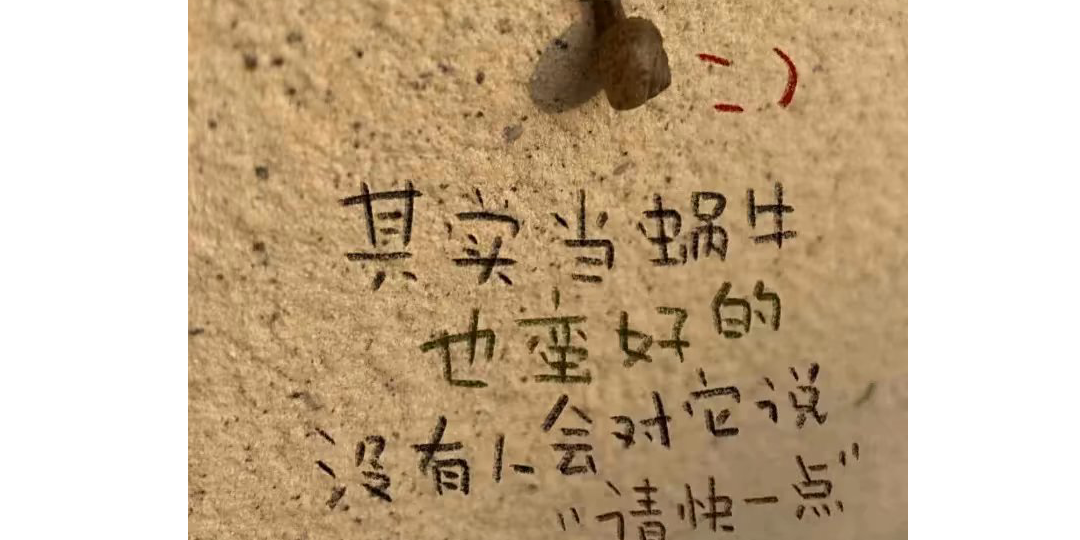 其实当蜗牛
也蛮好的
没有人会对它说
“请快一点”